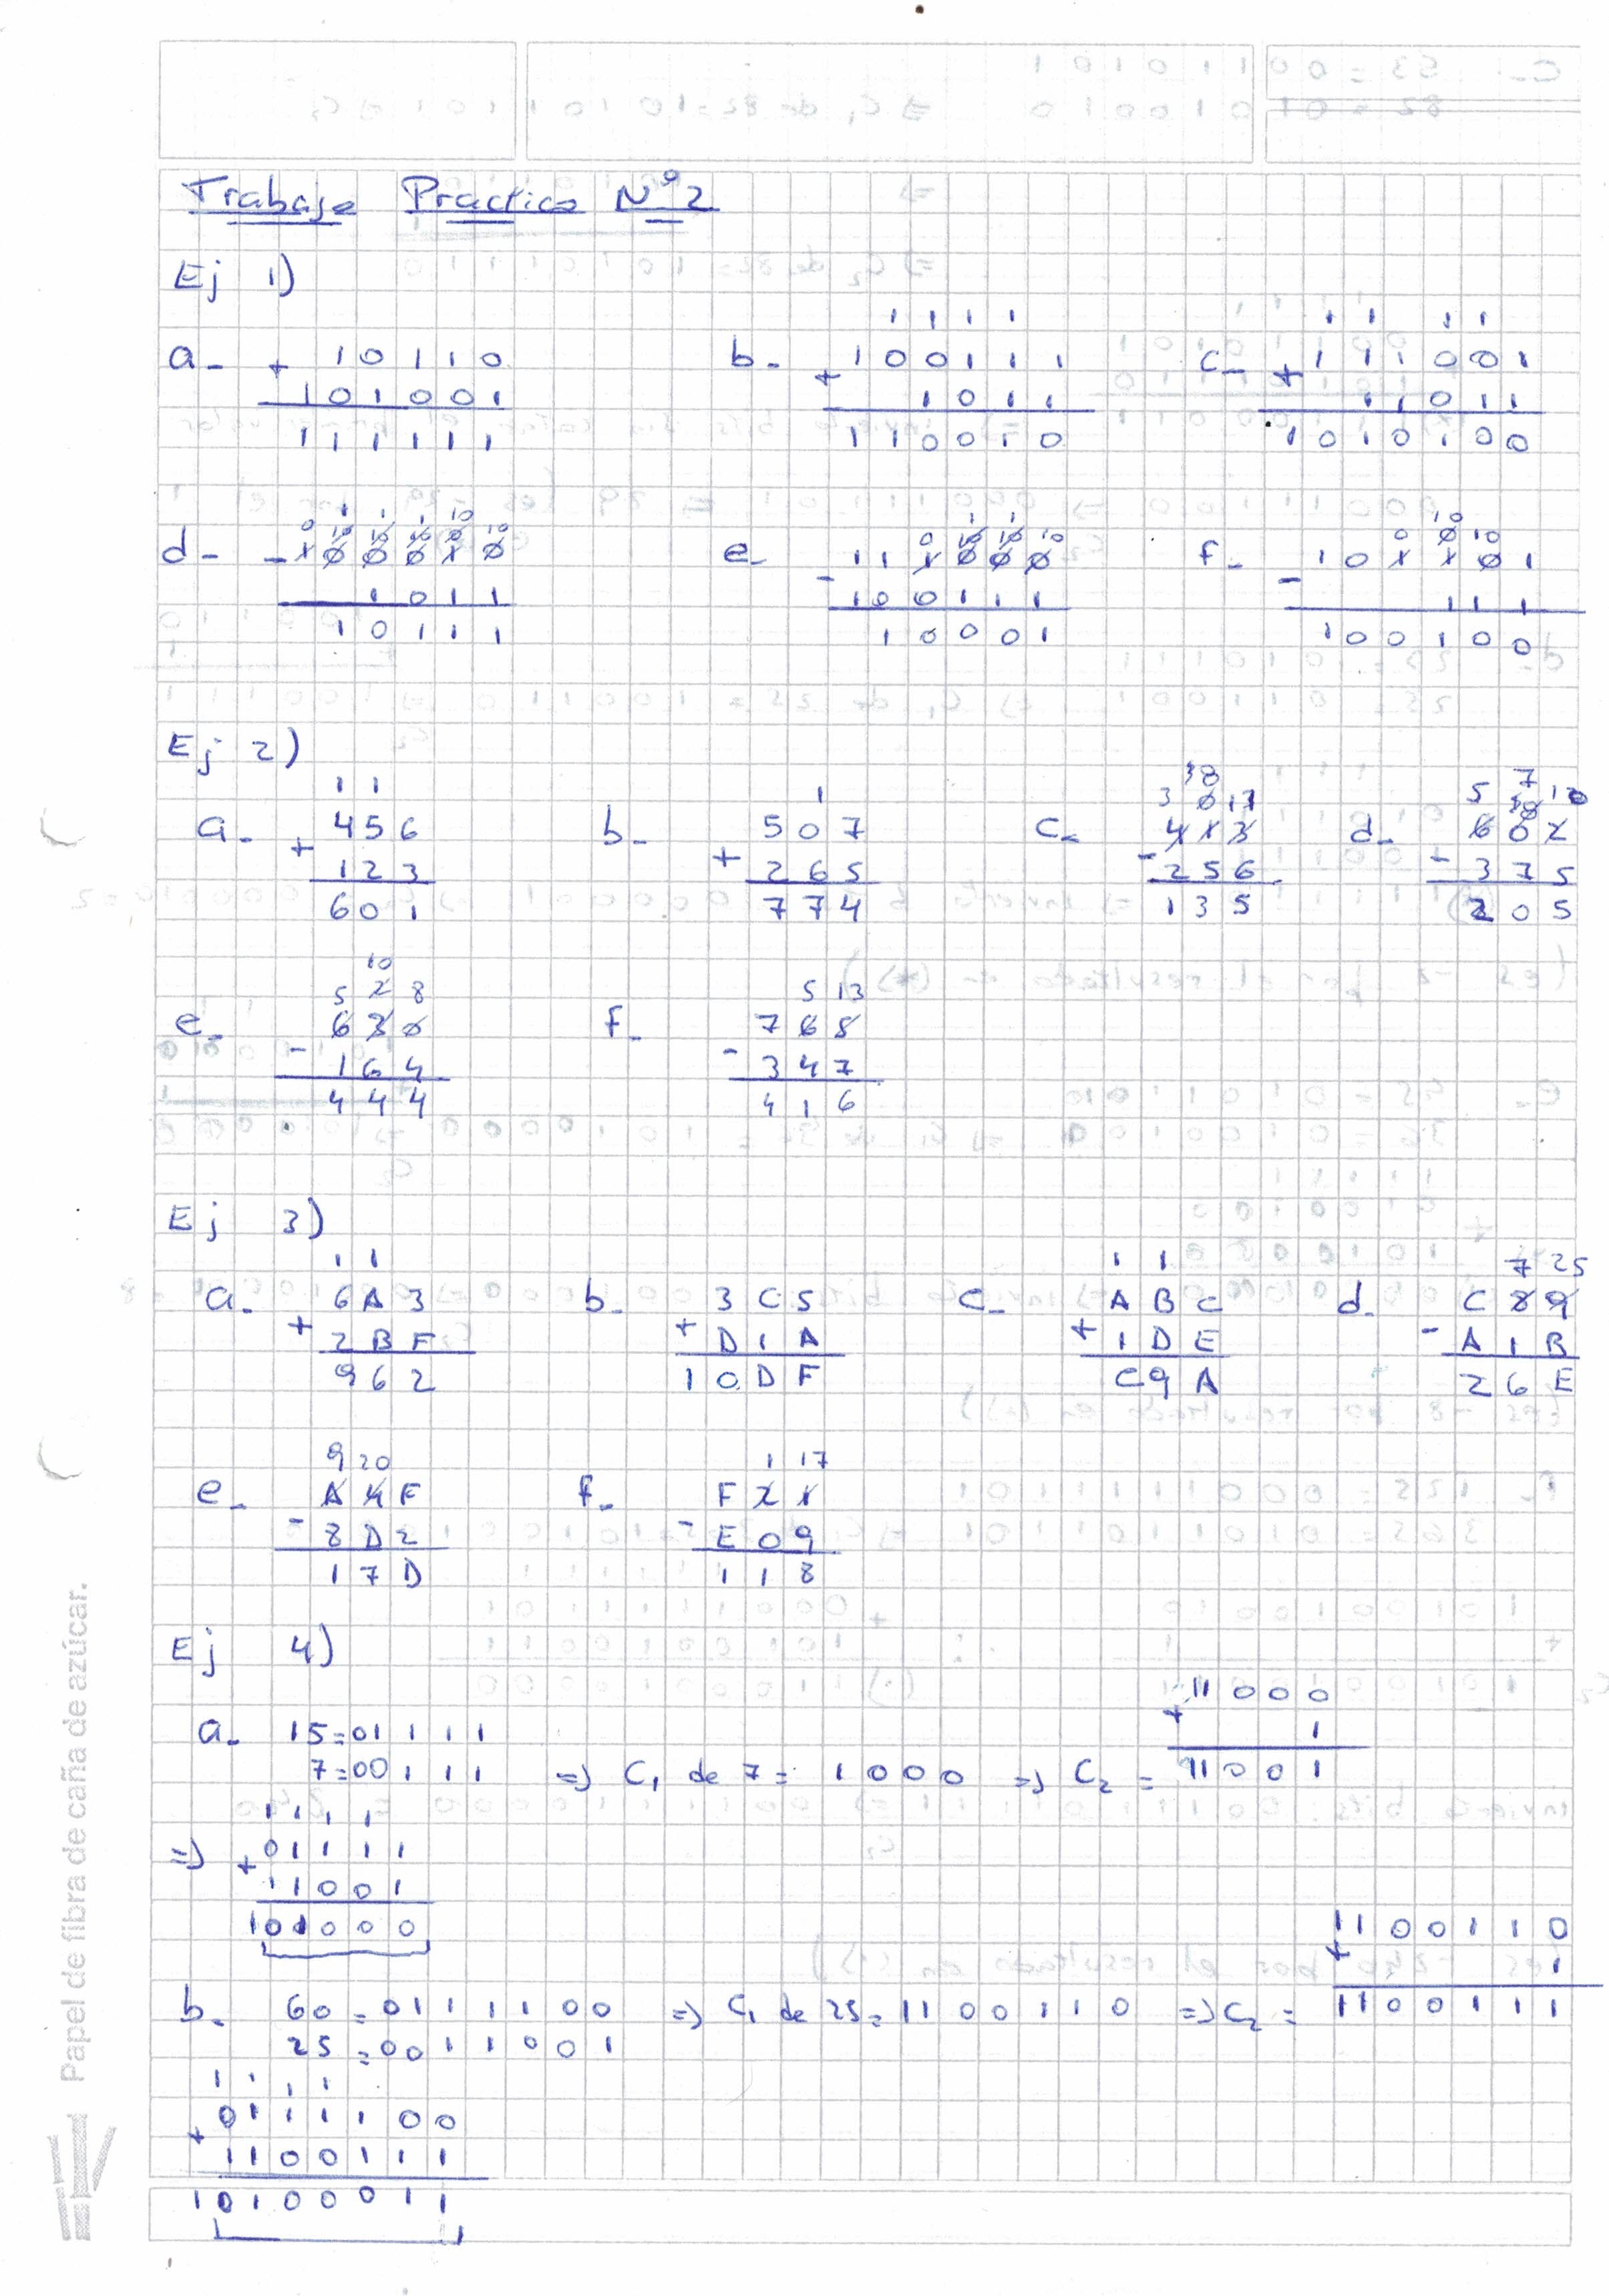 Trabajo Practico N°2
Ej 1)
a- + 10110
101001
111111
b- 1111
+ 100111
1011
110010
c- 11 11
+ 111001
11011
1010100
d- - 100010
1011
10111
e- - 111000
100111
10001
f- - 101101
111
100100
Ej 2)
a- 11
+ 456
123
601
b- 1
+ 507
265
774
c- 413
- 256
135
d- 602
- 375
205
e- 10
5 2 8
630
- 164
444
f- 5 13
765
- 347
416
Ej 3)
a- 11
+ 6A3
2BF
962
b- 3C5
+ D1A
10DF
c- 11
ABC
+ 1DE
C9A
d- 7 25
C89
- A1B
26E
e- 9 20
A4F
- 8D2
17D
f- 1 17
F21
- E09
118
Ej 4)
a- 15=01111
7=00111 => C1 de 7= 1000 => C2 =
11000
+ 1
11001
1111
=> + 01111
11001
101000
b- 60 = 0111100 => C1 de 25= 1100110 => C2 =
25 = 0011001
1100110
+ 1
1100111
1111
+ 0111100
1100111
10100011
Papel de fibra de caña de azúcar.